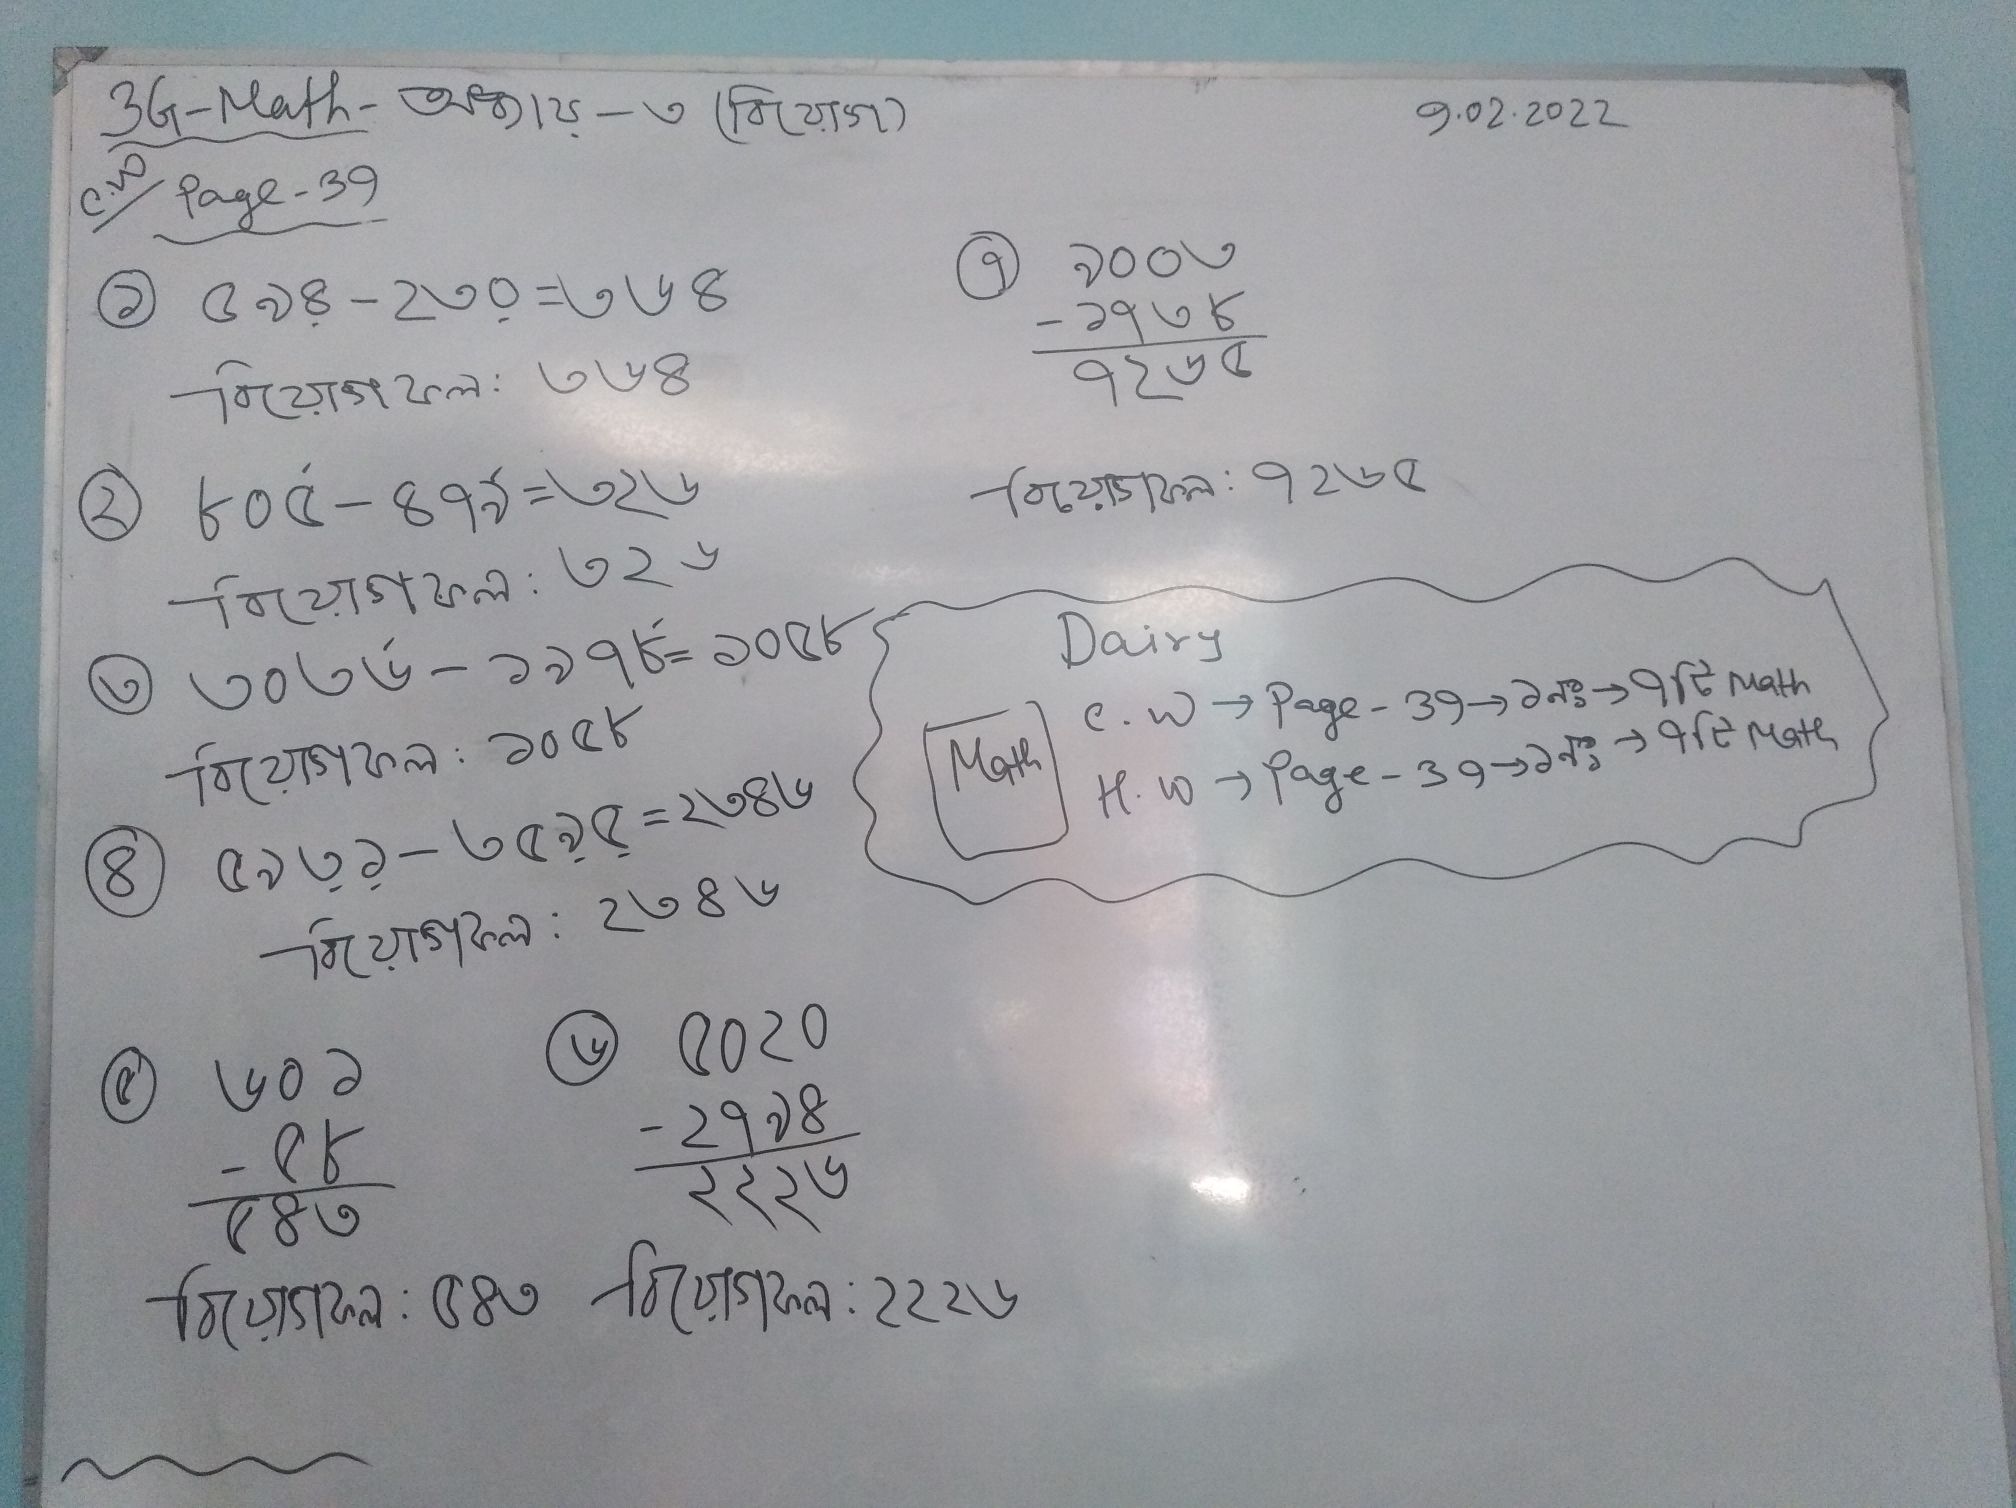 3G-Math- অধ্যায়-৩ (বিয়োগ)
9.02.2022
C.W/ Page-39
① ৫৯৪-২৩০=৩৬৪
বিয়োগফল: ৩৬৪
② ৮০৫-৪৭৯=৩২৬
বিয়োগফল: ৩২৬
③ ৩০৩৬-১৯৭৮=১০৫৮
বিয়োগফল: ১০৫৮
④ ৫৯৩১-৩৫৯৫=২৩৪৬
বিয়োগফল: ২৩৪৬
⑤ ৬০১
-৫৮
৫৪৩
বিয়োগফল: ৫৪৩
⑥ ৫০২০
-২৭৯৪
২২২৬
বিয়োগফল: ২২২৬
⑦ ৯০০৩
-১৭৩৮
৭২৬৫
বিয়োগফল: ৭২৬৫
Dairy
Math
C.W → Page-39 → ১নং → ৭টি Math
H.W → Page-39 → ১নং → ৭টি Math